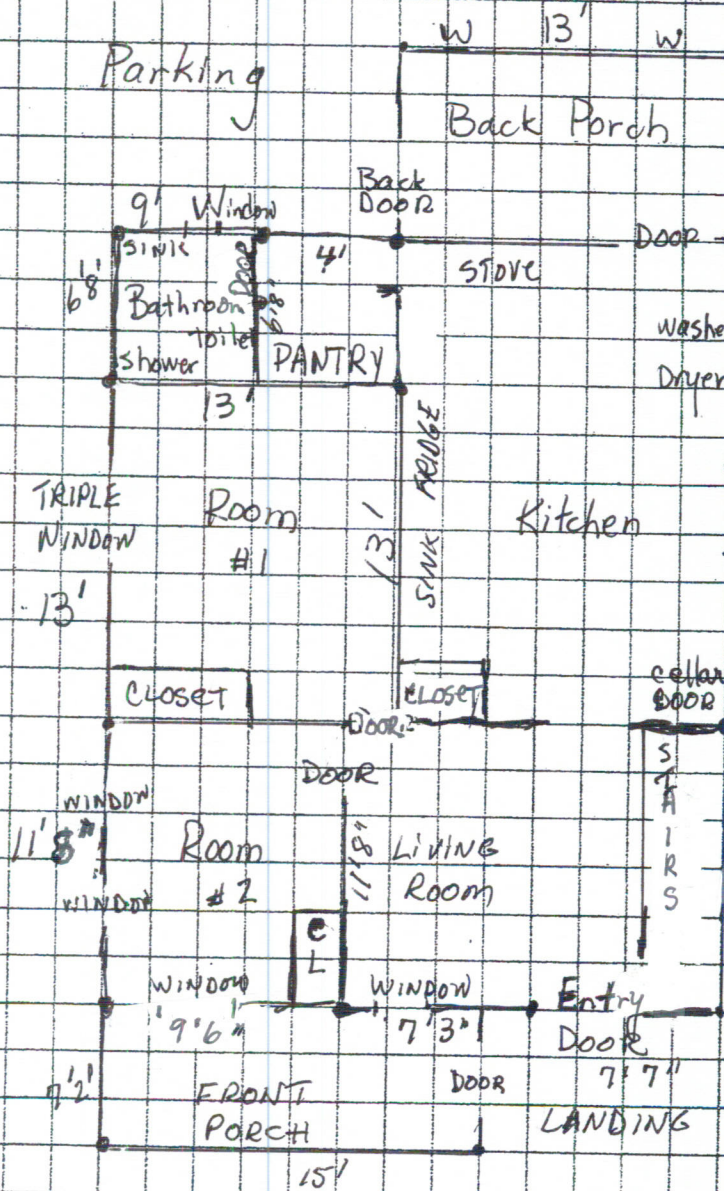 W 13' W
Parking
Back Porch
Back
DOOR
9' Window
SINK
4'
DOOR
STOVE
6'8"
Bathroom
DOOR
6'8"
toilet
Shower
PANTRY
washe
Dryer
13'
TRIPLE
WINDOW
Room
#1
13'
SINK FRIDGE
Kitchen
13'
CLOSET
CLOSET
cellar
DOOR
DOOR
DOOR
STAIRS
WINDOW
11'8"
Room
#2
11'8"
LIVING
Room
WINDOW
CL
WINDOW
9'6"
WINDOW
7'3"
Entry
Door
7'7"
7'2'
FRONT
PORCH
DOOR
LANDING
15'